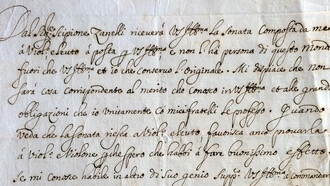 Dal Sig.r Scipione Zanelli riceverà VS Ill.ma la Sonata composta da me
à Viol.o e leuto à posta p VS Ill.ma e non l'hà persona di questo mondo
fuori che VS Ill.ma et io che conservo l'originale. Mi dispiace che non
sarà cosa corrispondente al merito che conosco in VS Ill.ma et alle grandi
obligazioni che io unitamente co miei fratelli le professo. Quando
veda che la suonata riesca à Viol.o e leuto favorisca anco provarla
à Viol.o e Violone che spero che habbi à fare buonissimo effetto
se mi conosce habile in altro di suo genio supp.co VS Ill.ma commandarmi